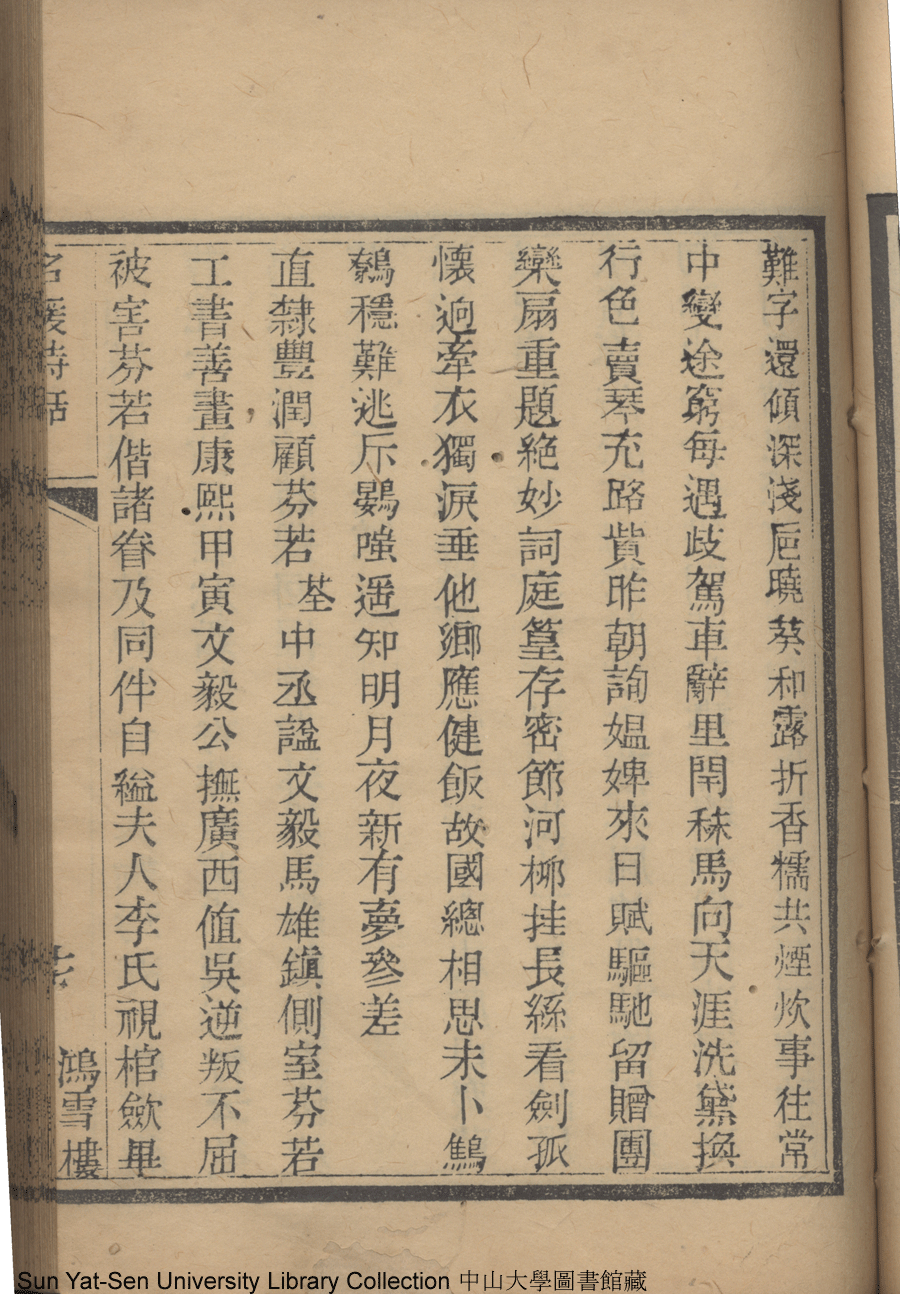 難字還傾深淺巵曉葵和露折香糯共煙炊事往常
中變途窮每遇歧駕車辭里閈秣馬向天涯洗黛換
行色賣琴充路貲昨朝詢媼婢來日賦驅馳留贈團
欒扇重題絶妙詞庭篁存密節河柳挂長絲看劍孤
懷逈牽衣獨淚垂他鄉應健飯故國總相思未卜鷦
鷯穩難逃斥鷃嗤遥知明月夜新有夢參差
直隸豐潤顧芬若荃中丞諡文毅馬雄鎮側室芬若
工書善畫康熙甲寅文毅公撫廣西值吳逆叛不屈
被害芬若偕諸眷及同伴自縊夫人李氏視棺斂畢
名媛詩話
鴻雪樓
Sun Yat-Sen University Library Collection 中山大學圖書館藏